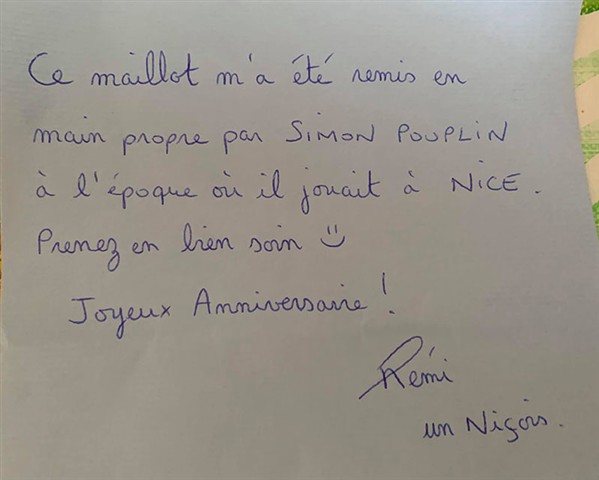 Ce maillot m'a été remis en
main propre par SIMON POUPLIN
à l'époque où il jouait à NICE.
Prenez en bien soin :)
Joyeux Anniversaire !
Rémi
un Niçois.